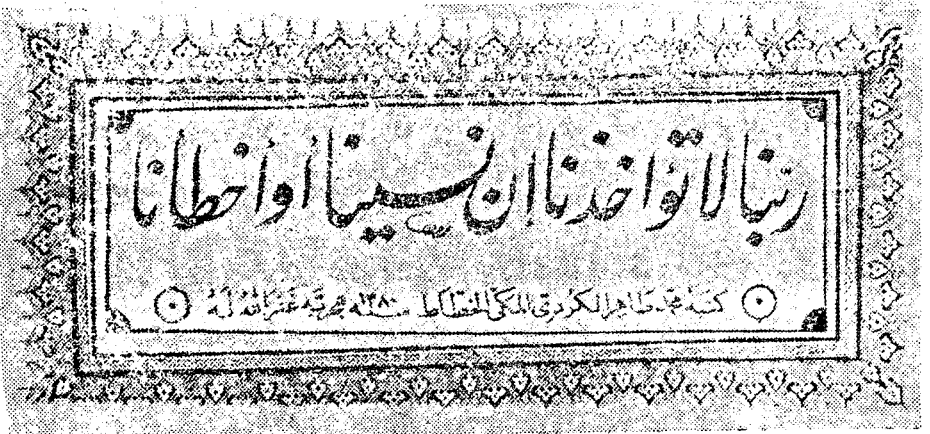 ربنا لا تؤاخذنا ان نسينا أو أخطأنا
كتبه محمد طاهر الكردي المكي الخطاط سنة ١٣٨٠ هجرية غفر الله له